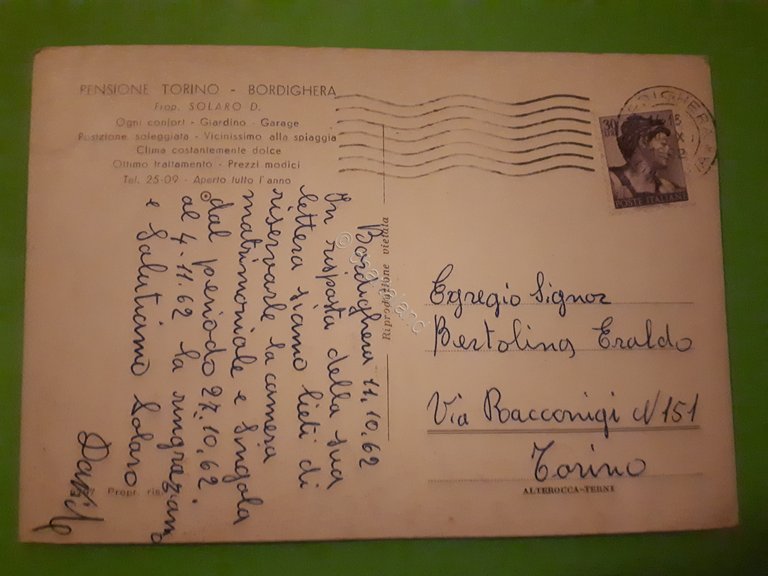 PENSIONE TORINO - BORDIGHERA
Prop. SOLARO D.
Ogni confort - Giardino - Garage
Posizione soleggiata - Vicinissimo alla spiaggia
Clima costantemente dolce
Ottimo trattamento - Prezzi modici
Tel. 25-09 - Aperto tutto l'anno
Bordighera 11.10.62
In risposta della sua
lettera siamo lieti di
riservarle la camera
matrimoniale e singola
dal periodo 27.10.62.
al 4.11.62 la ringraziamo
e salutiamo Solaro
Propr. ris
Riproduzione vietata
30
POSTE ITALIANE
Egregio Signor
Bertolina Eraldo
Via Racconigi N 151
Torino
ALTEROCCA-TERNI